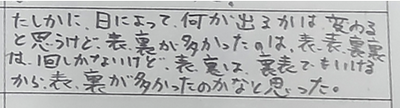 たしかに、日によって、何が出るかは変わる
と思うけど、表、裏が多かったのは、表、表、裏裏
は、1回しかないけど、表、裏は、裏表でもいける
から、表、裏が多かったのかなと思った。